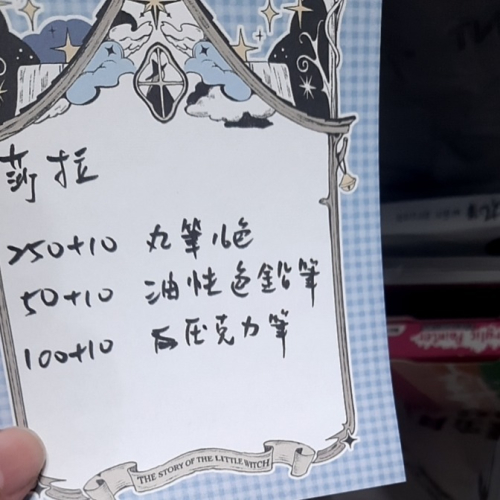 莎拉
250+10 丸筆16色
50+10 油性色鉛筆
100+10 压克力筆
THE STORY OF THE LITTLE WITCH
Painter